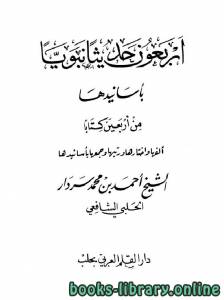 اربعون حديثا نبويا
بأسانيدها
من أربعين كتابا
ألفها واختارها ورتبها وجمعها بأسانيدها
الشيخ أحمد بن محمد سردار
الحلبي الشافعي
دار القلم العربي بحلب
books-library.online